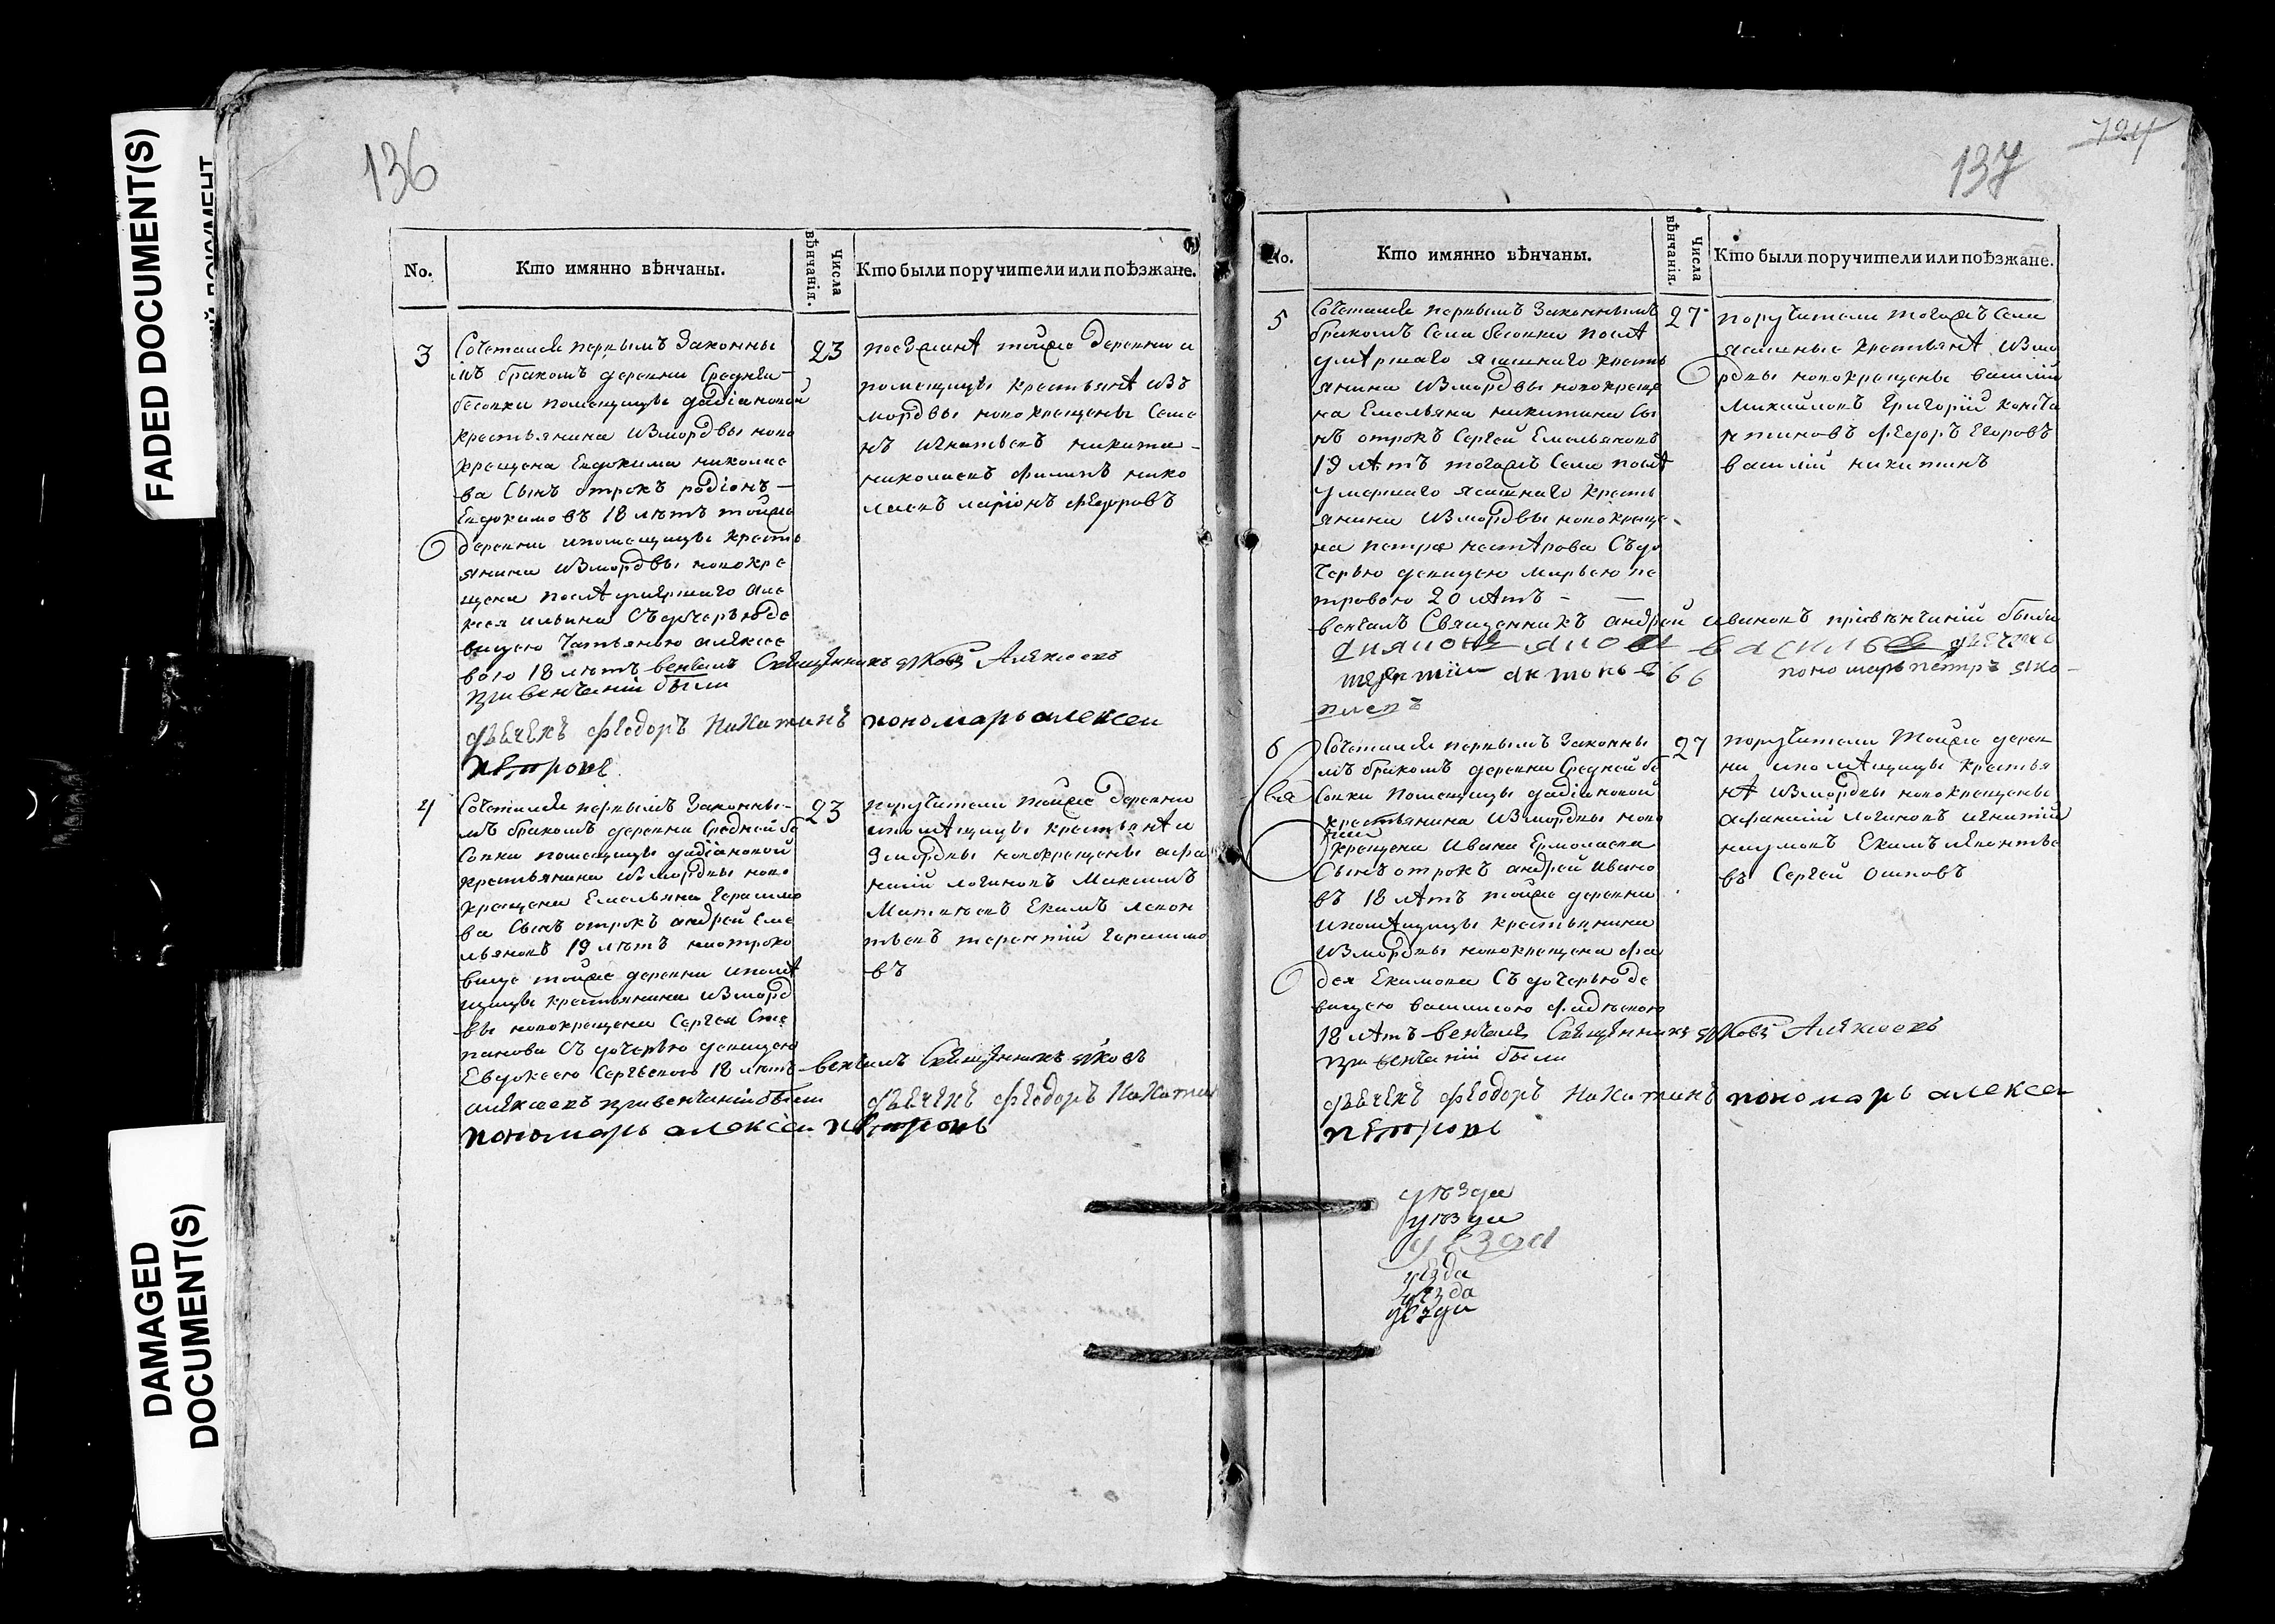 FADED DOCUMENT(S)
DAMAGED
DOCUMENT(S)
136
No.
Кто имянно вѣнчаны.
Числа
вѣнчанія.
Кто были поручители или поѣзжане.
3
Сочетался первымъ Законны
мъ бракомъ деревни Средней
бесовки помещицы дадiановой
крестьянина изъ мордвы ново
крещена Евдокима николае
ва Сынъ отрокъ родiонъ
Евдокимовъ 18 лѣтъ тойже
деревни ипомещицы кресть
янина изъ мордвы новокре
щена послѣ умершаго але
ксея ильина Съ дочерью де
вицею Татьяною алексее
вою 18 лѣтъ венчалъ Священникъ яковъ Алексеевъ
при венчаніи были
дьячекъ феодоръ Никитинъ пономарь алексеи
петровъ
23
поезжанѣ тойже деревни и
помещицы крестьянѣ изъ
мордвы новокрещены Семе
нъ игнатьевъ никита
николаевъ филипъ нико
лаевъ ларiонъ федоровъ
4
Сочетался первымъ Законны
мъ бракомъ деревни Средней бе
совки помещицы дадiановой
крестьянина изъ мордвы ново
крещена Емельяна Герасимо
ва Сынъ отрокъ андрей Еме
льяновъ 19 лѣтъ на отроко
вице тойже деревни ипомѣ
щицы крестьянина изъ морд
вы новокрещена Сергея Сте
панова Съ дочерью девицею
Евдокеею Сергѣевою 18 лѣтъ венчалъ Священникъ яковъ
алексеевъ при венчаніи были дьячекъ феодоръ Никитин
пономарь алексеи петровъ
23
поручители тойже деревни
ипомѣщицы крестьянѣ и
змордвы новокрещены афа
насій логиновъ Максимъ
Матвеевъ Екимъ леон
тьевъ терентій Герасимо
въ
137
124
No.
Кто имянно вѣнчаны.
Числа
вѣнчанія.
Кто были поручители или поѣзжане.
5
Сочетался первымъ Законнымъ
бракомъ Села бесовки послѣ
умѣршаго ясашнаго кресть
янина изъ мордвы новокреще
на Емельяна никитина Сы
нъ отрокъ Сергей Емельяновъ
19 лѣтъ тогожъ Села послѣ
умершаго ясашнаго кресть
янина изъ мордвы новокреще
на петра нестѣрова Съ до
черью девицею марьею пе
тровою 20 лѣтъ
венчалъ Священникъ андрей ивановъ при вѣнчаній были
пономарь петръ яко
влевъ
27
поручители тогожъ Села
ясашные крестьянѣ изъ мо
рдвы новокрещены василій
Михайловъ Григорій конста
нтиновъ федоръ Егоровъ
василій никитинъ
6
Сочетался первымъ Законны
мъ бракомъ деревни Средней бе
совки помещицы дадiановой
крестьянина изъ мордвы ново
крещена Ивана Ермолаева
Сынъ отрокъ андрей Ивано
въ 18 лѣтъ тойже деревни
ипомѣщицы крестьянина
изъ мордвы новокрещена фа
дея Екимова Съ дочерью де
вицею василисою фадѣевою
18 лѣтъ венчалъ Священникъ яковъ Алексеевъ
при венчаніи были
дьячекъ феодоръ Никитинъ пономарь алексеи
петровъ
27
поручители тойже дерев
ни ипомѣщицы крестья
нѣ изъ мордвы новокрещены
афанасій логиновъ игнатій
наумовъ Екимъ леонтье
въ Сергей осиповъ
уѣзда
уѣзда
уѣзда
уѣзда
уѣзда
уѣзда